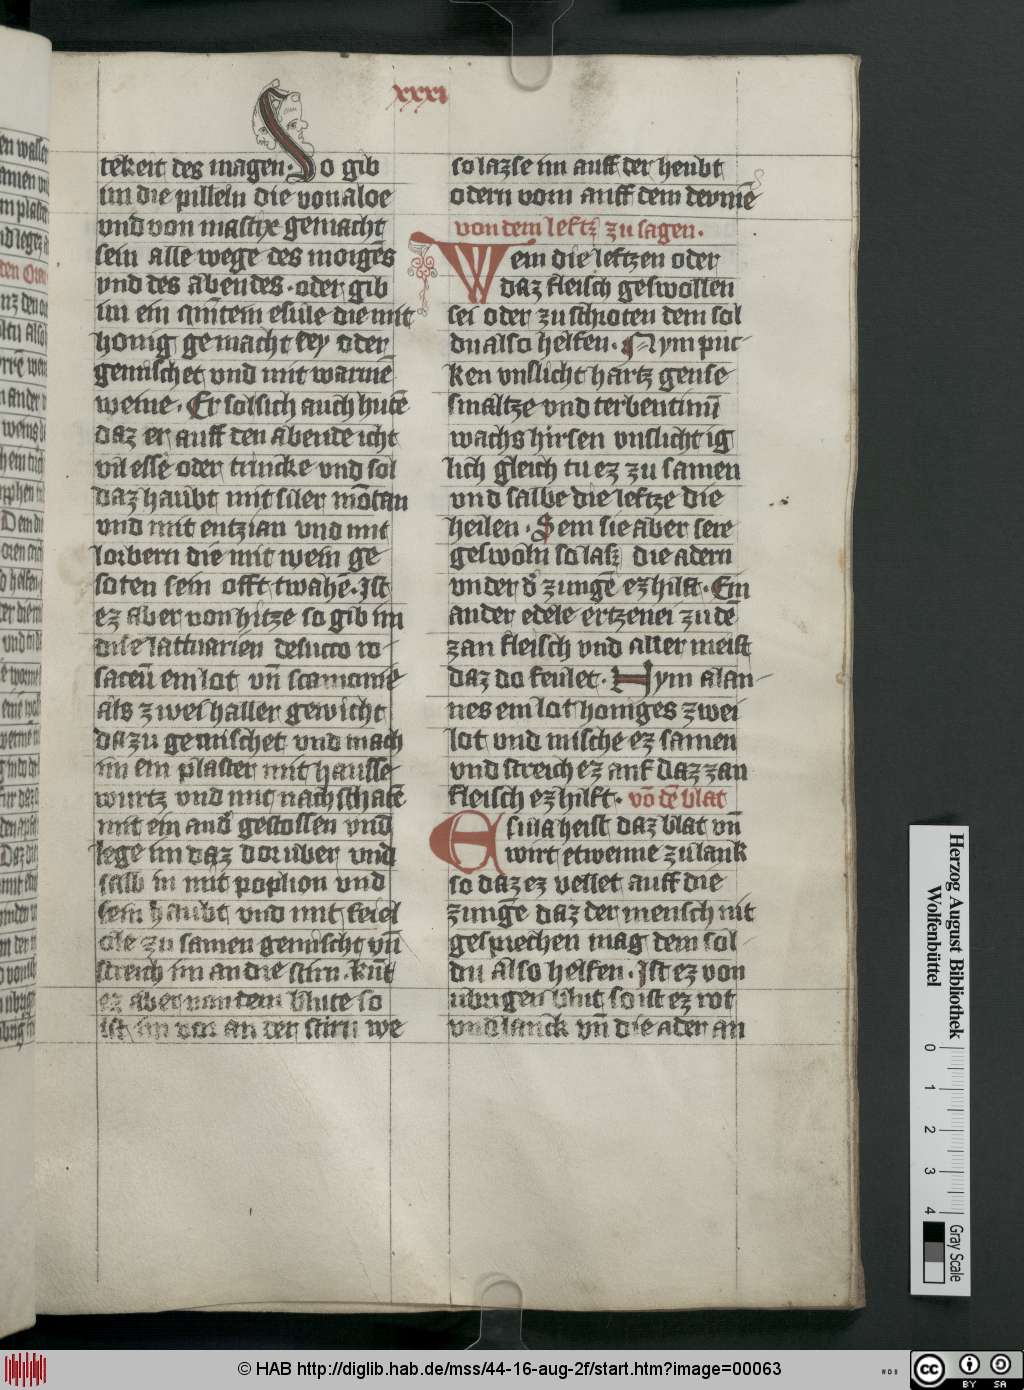 xxxi
tekeit des magen· So gib
im die pilleln die von aloe
vnd von mastix gemacht
sein alle wege des morgēs
vnd des abendes· oder gib
im ein qintein esule die mit
honig gemacht sey oder
gemischet vnd mit warmē
weine· Er sol sich auch hutē
daz er auff den abende icht
vil esse oder trincke vnd sol
daz haubt mit siler mōtan
vnd mit entzian vnd mit
lorbern die mit wein ge
soten sein offt twahē· Ist
ez aber von hitze so gib im
dise lattuarien desucco ro-
saceū ein lot vn̄ scamonie
als zwei haller gewicht
dazu gemischet vnd mach
im ein plaster mit hausse
wurtz vnd mit nachschatē
mit ein and̕ gestossen vnd
lege im daz doruber vnd
salb in mit popl'ion vnd
sein haubt vnd mit feiel
ole zu samen gemischt vn̄
streich im an die stirn· kūt
ez aber von dem blute so
ist im vor an der stirn we
so lazse im auff der heubt
odern vorn auff dem deymē
von dem leftz̕ zu sagen·
Wem die leftzen oder
daz fleisch geswollen
sei oder zuschroten dem sol
du also helfen· Nym puc-
ken vnslicht hartz gense
smaltze vnd terbentinū
wachs hirsen vnslicht ig
lich gleich tu ez zu samen
vnd salbe die leftze die
heilen· Sein sie aber sere
geswoln so lasz die adern
vnder d̕ zungē ez hilft· Ein
ander edele ertzenei zu dē
zan fleisch vnd aller meist
daz do feulet· Nym alau-
nes ein lot honiges zwei
lot vnd mische ez samen
vnd streich ez auf daz zan
fleisch ez hilft· vō dē blat
Esiua heist daz blat vn̄
wirt etwenne zu lank
so daz ez vellet auff die
zunge daz der mensch nit
gesprechen mag dem sol
du also helfen· Ist ez von
ubrigen blut so ist ez rot
vnd lanck vn̄ die ader an
Herzog August Bibliothek
Wolfenbüttel
0 1 2 3 4
Gray Scale
© HAB http://diglib.hab.de/mss/44-16-aug-2f/start.htm?image=00063
WDB
cc BY SA